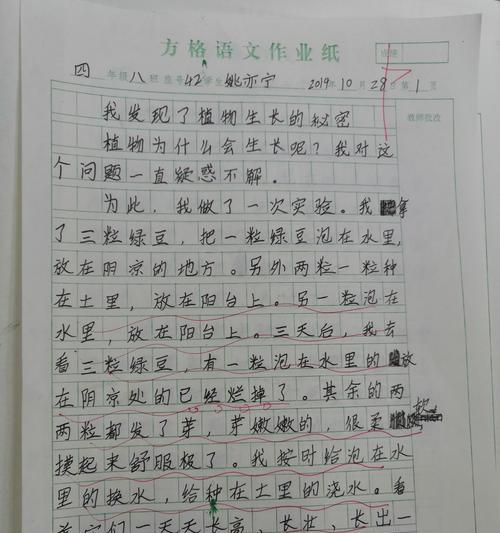 方格语文作业纸
成绩
四年级八班座号42学生姚亦宁 2019年10月28日第1页
教师批改
我发现了植物生长的秘密
植物为什么会生长呢？我对这
个问题一直疑惑不解。
为此，我做了一次实验。我拿
了三粒绿豆，把一粒绿豆泡在水里，
放在阴凉的地方。另外两粒一粒种
在土里，放在阳台上。另一粒泡在
水里，放在阳台上。三天后，我去
看三粒绿豆，有一粒泡在水里的放
在阴凉处的已经烂掉了。其余的两
两粒都发了芽，芽嫩嫩的，很柔软
摸起来舒服极了。我按时给泡在水
里的换水，给种在土里的浇水。看
着它们一天天长高，长壮，长出一